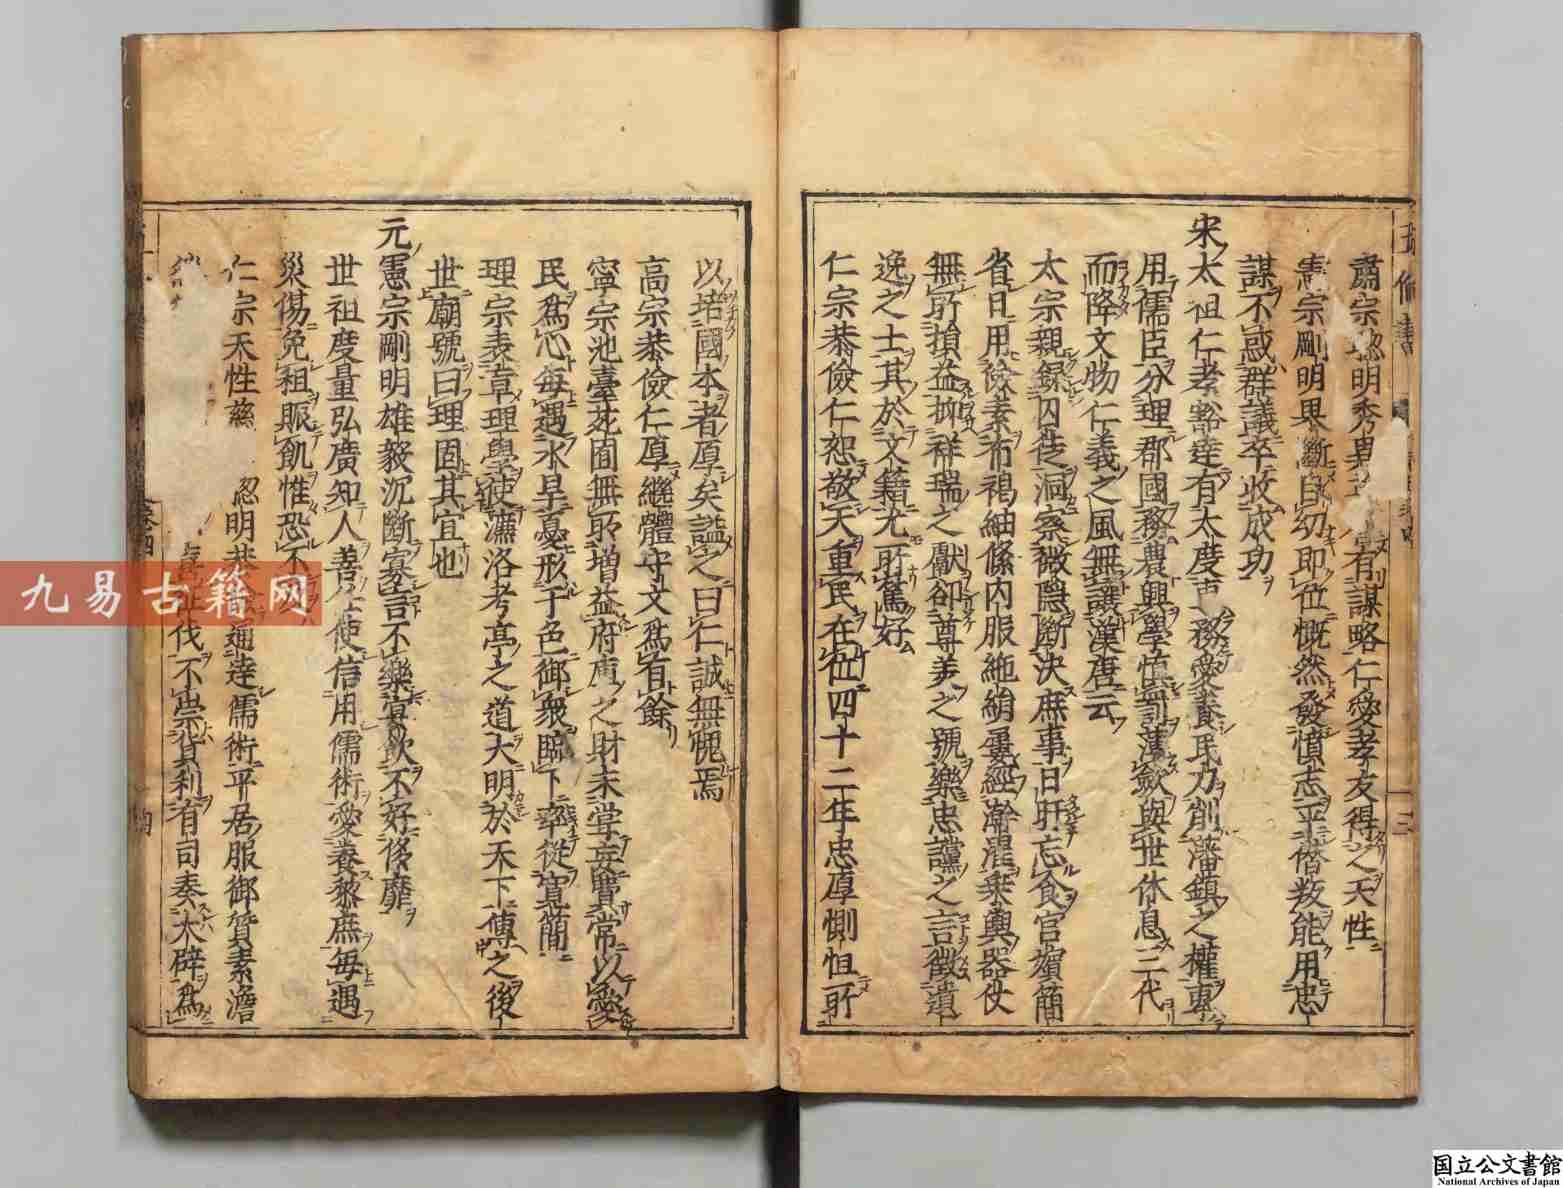 肅宗聰明秀 有謀略仁愛孝友得之天性
憲宗剛明果斷自初即位慨然發憤志平僭叛能用忠
謀不惑群議卒收成功
宋太祖仁孝豁達有大度 務愛養民力削藩鎮之權專
用儒臣分理郡國務農興學慎罰薄斂與世休息三代
而降文物仁義之風無讓漢唐云
太宗親錄囚徒洞察微隱斷決庶事日旰忘食官嬪簡
省日用儉素布褐紬絛內服絁絹屢經澣濯乗輿器仗
無所損益抑祥瑞之獻卻尊美之號樂忠讜之言徵遺
逸之士其於文籍尤所篤好
仁宗恭儉仁恕敬天重民在位四十二年忠厚惻怛所
以培國本者厚矣謚之曰仁誠無愧焉
高宗恭儉仁厚繼體守文爲有餘
寧宗池臺苑囿無所増益府庫之財未甞妄費常以愛
民爲心每遇水旱憂形于色御衆臨下率從寬簡
理宗表章理學使濂洛考亭之道大明於天下傳之後
世廟號曰理固其宜也
元憲宗剛明雄毅沉斷寡言不樂宴飲不好侈靡
世祖度量弘廣知人善任使信用儒術愛養黎庶每遇
災傷免租賑飢惟恐不
仁宗天性慈 明恭 通達儒術平居服御質素澹
伐不崇貨利有司奏大辟爲
九易古籍网
国立公文書館
National Archives of Japan